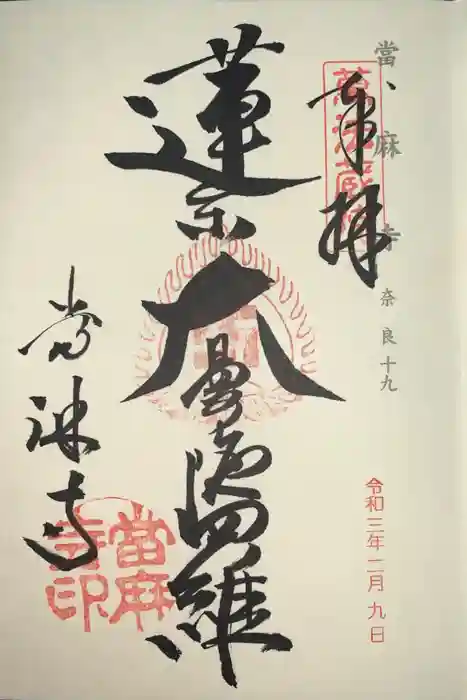 當麻寺 奈良十九
奉拝
萬法蔵院
令和三年二月九日
蓮糸大曼荼羅
當麻寺
當麻寺印